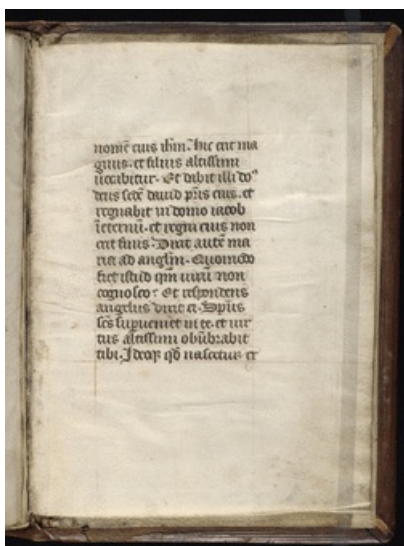 nomē eius ihm̄. hic erit ma
gnus. et filius altissimi
uocabitur. Et dabit illi dō
deus sedē dauid pr̄is eius. et
regnabit in domo iacob
ieternū. et regni eius non
erit finis. Dixit autē ma
ria ad anglm̄. Quomodo
fiet istud qm̄ uirū non
cognosco? Et respondens
angelus dixit ei. Sp̄us
sc̄s supueniet in te. et uir
tus altissimi obūbrabit
tibi. Ideoqꝫ qd̄ nascetur ex